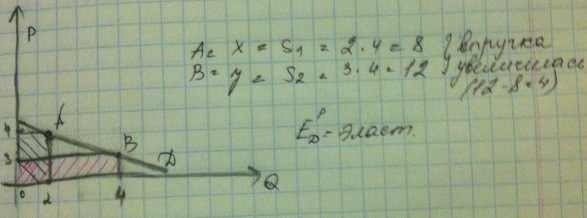 P
A = x = S₁ = 2·4 = 8 } выручка
B = y = S₂ = 3·4 = 12 } увеличилась
(12-8=4)
E_D^P = эласт.
4
A
3
B
D
0
2
4
Q